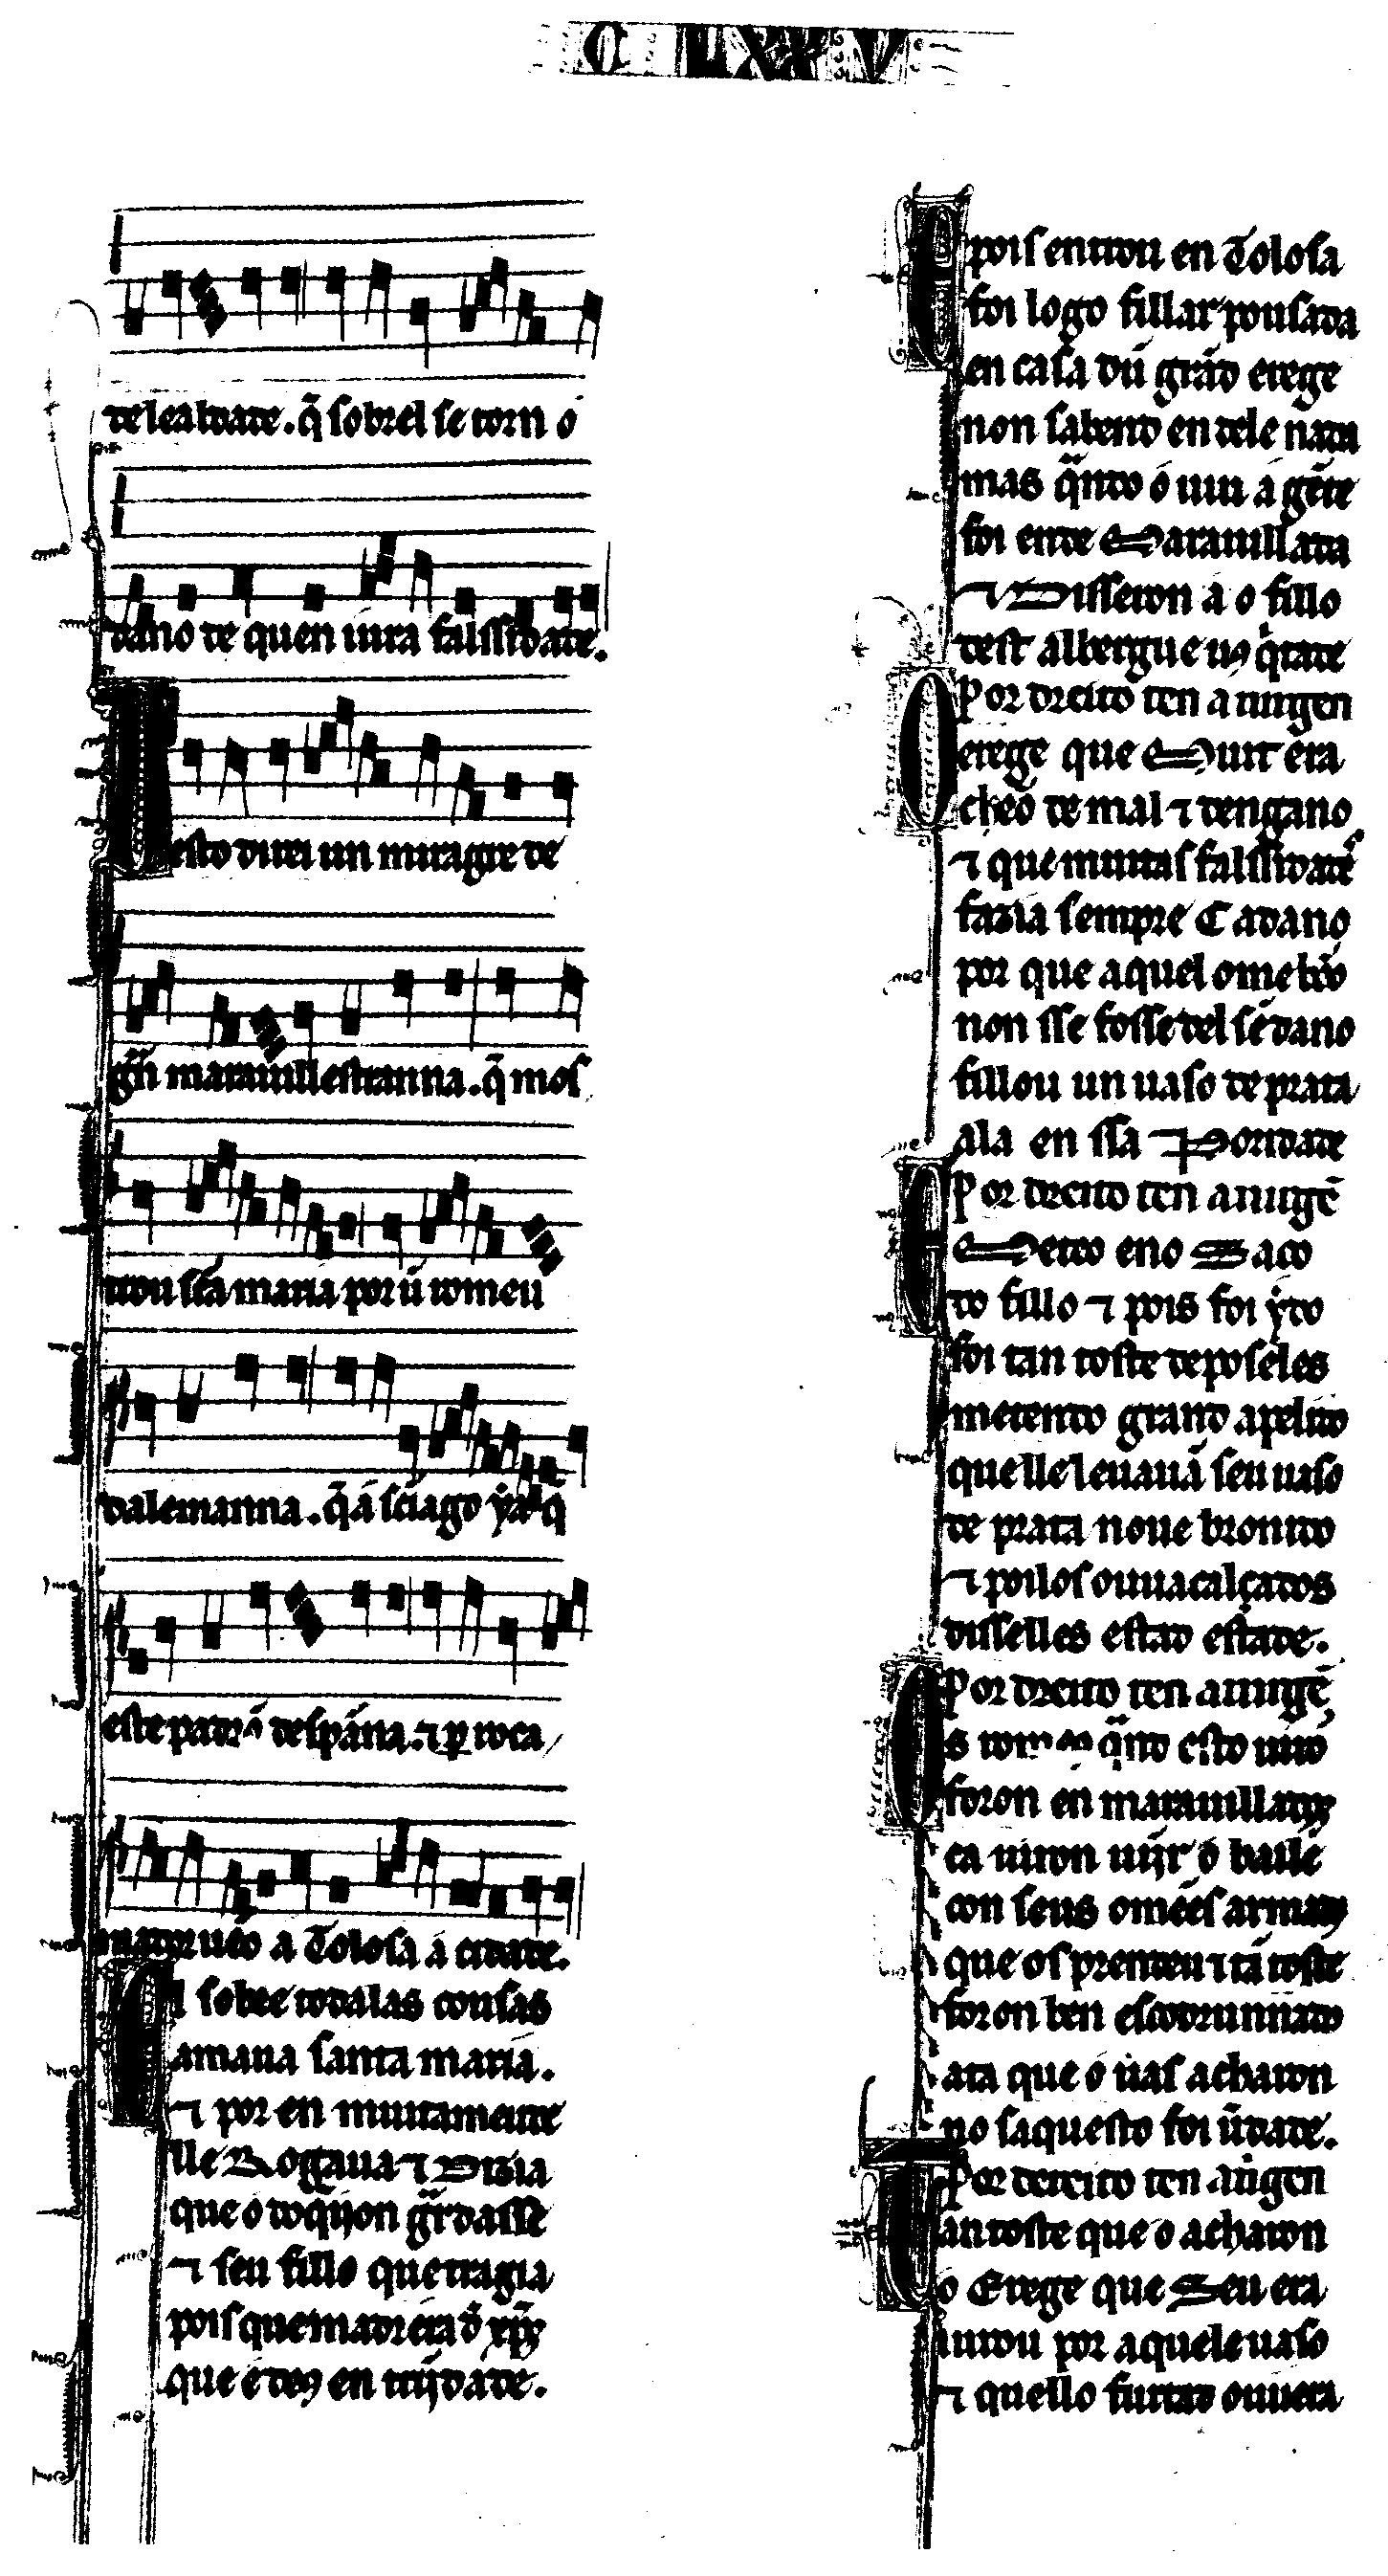 C LXXV
de lealdade. q̄ sobrel se torn ó
dano de quen mira falssidade.
Desto direi un miragre de
gr̃n marauill estranna. q̄ mos
trou sc̃a maria por ũ romeu
dalemanna. q̄ á sc̃iago ya q̄
este padrõ despãna. ⁊ p roca
mador uẽo a Tolosa á cidade.
El sobre todalas cousas
amaua santa maria.
⁊ por en muitamente
lle Rogaua ⁊ Dizia
que o toq̄ijon gr̃dasse
⁊ seu fillo que tragia
pois que madr era d xp̃o
que é deus en trijdade.
E pois entrou en Tolosa
foi logo fillar pousada
en casa dũ grãd erege
non sabend en dele nada
mas q̃ndo ó uiu á gẽte
foi ende Marauillada
⁊ Disseron a o fillo
dest albergue uos q̇tade
Por dreito ten a uirgen
O erege que Muit era
chẽo de mal ⁊ dengano
⁊ que muitas falssidades
fazia sempre Cadano
por que aquel ome bõo
non sse fosse del sẽ dano
fillou un uaso de prata
ala en ssa Poridade
Por dreito ten a uirgẽ
E Meteo eno Saco
do fillo ⁊ pois foi ydo
foi tan toste de pos eles
metendo grand apelido
que lle leuauã seu uaso
de prata noue bronido
⁊ poilos ouu acalçados
diss elles estad estade.
Por dreito ten a uirgẽ
Os romeus q̃ndo esto uirõ
foron en marauillados
ca uiron uĩjr o baile
con seus omẽes armados
que os prendeu ⁊ tã toste
foron ben escodrunnados
ata que o uas acharon
no saqu esto foi ũdade.
Por dereito ten a uirgen
Tan toste que o acharon
o Erege que Seu era
iurou por aquele uaso
⁊ quello furtad ouuera